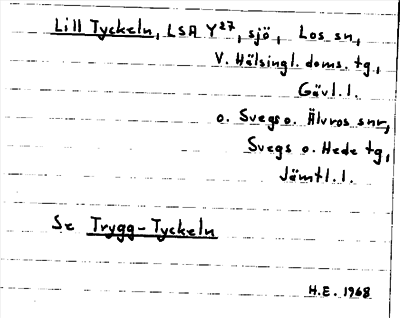 Lill Tyckeln, LSA Y27, sjö, Los sn,
V. Hälsingl. doms. tg,
Gävl. l.
o. Svegs o. Älvros snr,
Svegs o. Hede tg,
Jämtl. l.
Se Trygg-Tyckeln
H.E. 1968